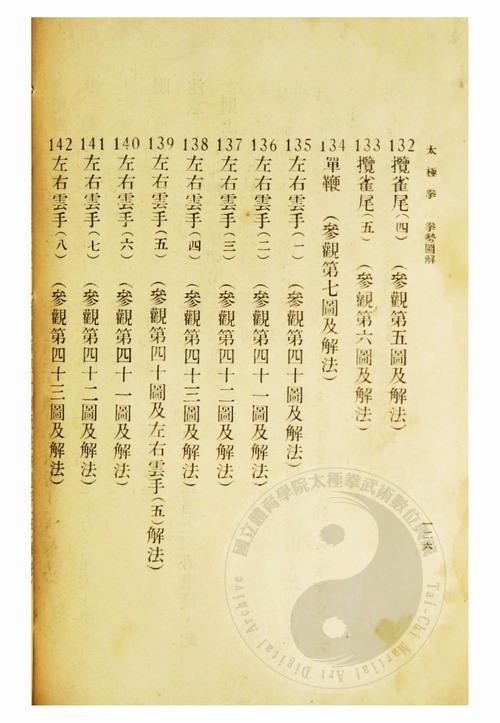 太極拳 拳勢圖解
132 攬雀尾(四) (參觀第五圖及解法)
133 攬雀尾(五) (參觀第六圖及解法)
134 單鞭 (參觀第七圖及解法)
135 左右雲手(一) (參觀第四十圖及解法)
136 左右雲手(二) (參觀第四十一圖及解法)
137 左右雲手(三) (參觀第四十二圖及解法)
138 左右雲手(四) (參觀第四十三圖及解法)
139 左右雲手(五) (參觀第四十圖及左右雲手(五)解法)
140 左右雲手(六) (參觀第四十一圖及解法)
141 左右雲手(七) (參觀第四十二圖及解法)
142 左右雲手(八) (參觀第四十三圖及解法)
國立體育學院太極拳武術數位典藏
Tai-Chi Martial Art Digital Archive